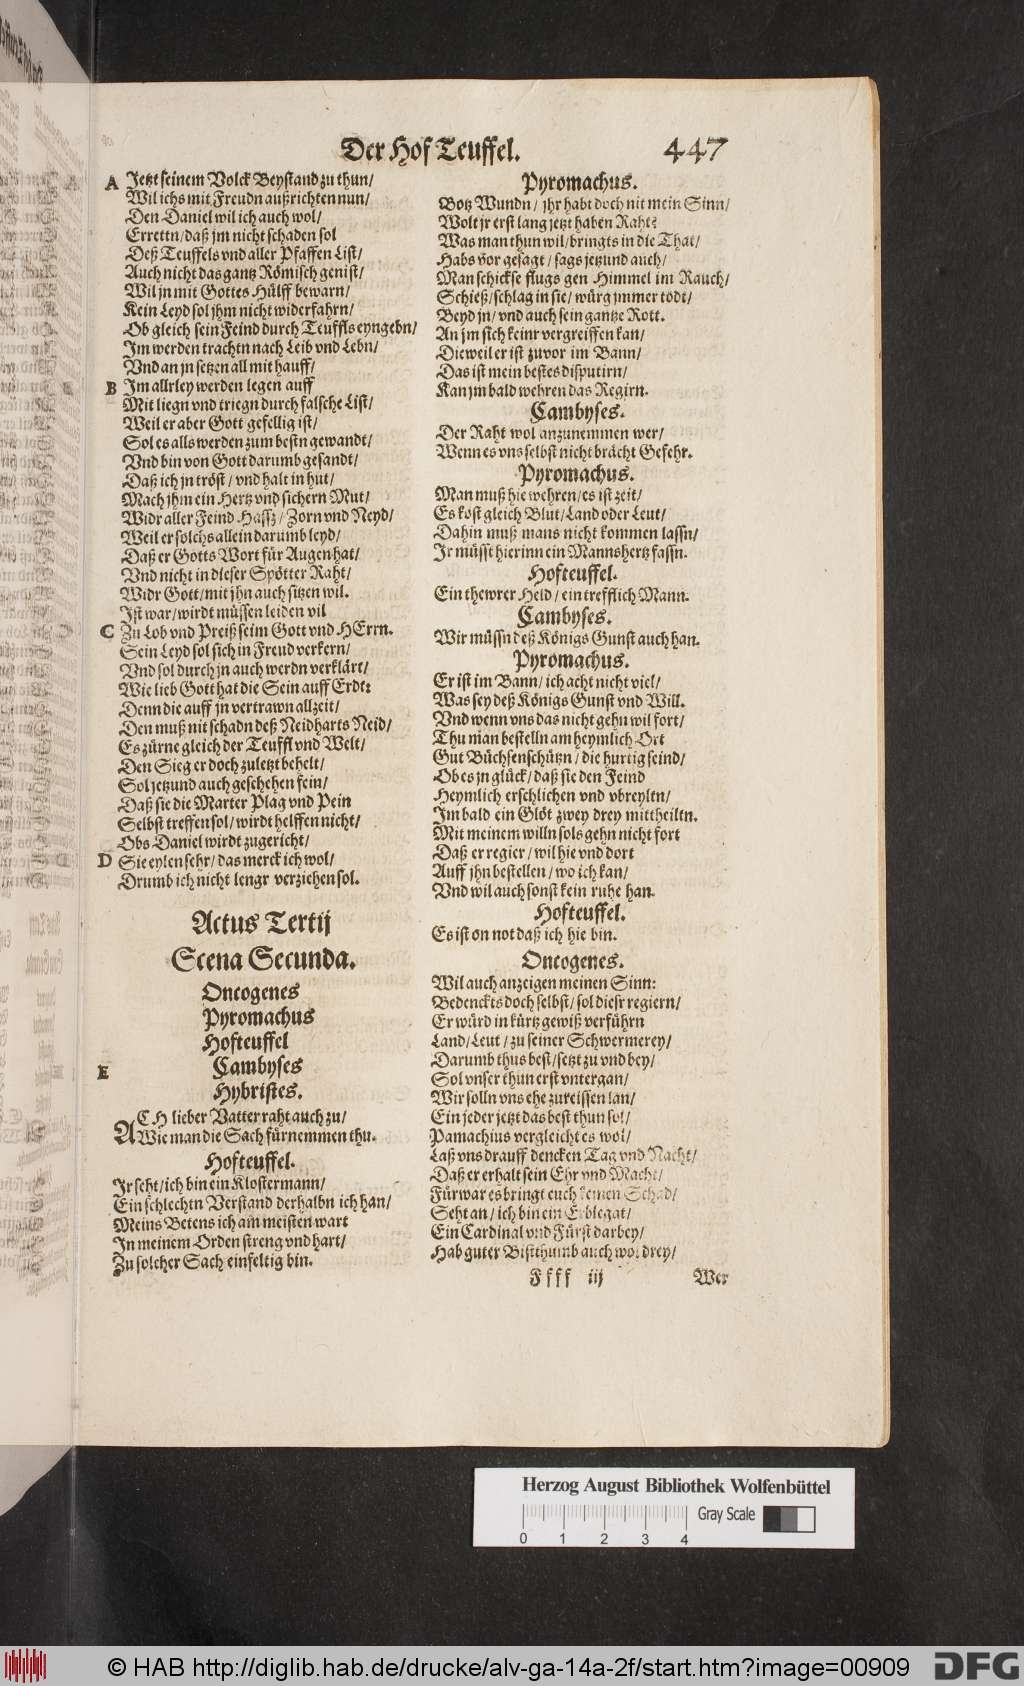 Der Hof Teuffel. 447
A Jetzt seinem Volck Beystand zu thun/
Wil ichs mit Freudn außrichten nun/
Den Daniel wil ich auch wol/
Errettn/ daß jm nicht schaden sol
Deß Teuffels vnd aller Pfaffen List/
Auch nicht das gantz Römisch genist/
Wil jn mit Gottes Hülff bewarn/
Kein Leyd sol jhm nicht widerfahrn/
Ob gleich sein Feind durch Teuffls eyngebn/
Im werden trachtn nach Leib vnd Lebn/
Vnd an jn setzen all mit hauff/
B Im allrley werden legen auff
Mit liegn vnd triegn durch falsche List/
Weil er aber Gott gefellig ist/
Sol es alls werden zum bestn gewandt/
Vnd bin von Gott darumb gesandt/
Daß ich jn tröst/ vnd halt in hut/
Mach jhm ein Hertz vnd sichern Mut/
Widr aller Feind Hassz/ Zorn vnd Neyd/
Weil er solchs allein darumb leyd/
Daß er Gotts Wort für Augen hat/
Vnd nicht in dieser Spötter Raht/
Widr Gott/ mit jhn auch sitzen wil.
Ist war/ wirdt müssen leiden vil
C Zu Lob vnd Preiß seim Gott vnd HErrn.
Sein Leyd sol sich in Freud verkern/
Vnd sol durch jn auch werdn verklärt/
Wie lieb Gott hat die Sein auff Erdt:
Denn die auff jn vertrawn allzeit/
Den muß nit schadn deß Neidharts Neid/
Es zürne gleich der Teuffl vnd Welt/
Den Sieg er doch zuletzt behelt/
Sol jetzund auch geschehen fein/
Daß sie die Marter Plag vnd Pein
Selbst treffen sol/ wirdt helffen nicht/
Obs Daniel wirdt zugericht/
D Sie eylen sehr/ das merck ich wol/
Drumb ich nicht lengr verziehen sol.
Actus Tertij
Scena Secunda.
Oncogenes
Pyromachus
Hofteuffel
E Cambyses
Hybristes.
ACH lieber Vatter raht auch zu/
Wie man die Sach fürnemmen thu.
Hofteuffel.
Ir seht/ ich bin ein Klostermann/
Ein schlechtn Verstand derhalbn ich han/
Meins Betens ich am meisten wart
In meinem Orden streng vnd hart/
Zu solcher Sach einfeltig bin.
Pyromachus.
Botz Wundn/ jhr habt doch nit mein Sinn/
Wolt jr erst lang jetzt haben Raht?
Was man thun wil/ bringts in die That/
Habs vor gesagt/ sags jetzund auch/
Man schickse flugs gen Himmel im Rauch/
Schieß/ schlag in sie/ würg jmmer tödt/
Beyd jn/ vnd auch sein gantze Rott.
An jm sich keinr vergreiffen kan/
Dieweil er ist zuvor im Bann/
Das ist mein bestes disputirn/
Kan jm bald wehren das Regirn.
Cambyses.
Der Raht wol anzunemmen wer/
Wenn es vns selbst nicht brächt Gefehr.
Pyromachus.
Man muß hie wehren/ es ist zeit/
Es kost gleich Blut/ Land oder Leut/
Dahin muß mans nicht kommen lassn/
Ir müsst hierinn ein Mannshertz fassn.
Hofteuffel.
Ein thewrer Held/ ein trefflich Mann.
Cambyses.
Wir müssn deß Königs Gunst auch han.
Pyromachus.
Er ist im Bann/ ich acht nicht viel/
Was sey deß Königs Gunst vnd Will.
Vnd wenn vns das nicht gehn wil fort/
Thu man bestelln am heymlich Ort
Gut Büchsenschützn/ die hurtig seind/
Ob es jn glück/ daß sie den Feind
Heymlich erschlichen vnd vbreyltn/
Im bald ein Glöt zwey drey mittheiltn.
Mit meinem willn sols gehn nicht fort
Daß er regier/ wil hie vnd dort
Auff jhn bestellen/ wo ich kan/
Vnd wil auch sonst kein ruhe han.
Hofteuffel.
Es ist on not daß ich hie bin.
Oncogenes.
Wil auch anzeigen meinen Sinn:
Bedenckts doch selbst/ sol diesr regiern/
Er würd in kürtz gewiß verführn
Land/ Leut/ zu seiner Schwermerey/
Darumb thus best/ setzt zu vnd bey/
Sol vnser thun erst vntergan/
Wir solln vns ehe zureissen lan/
Ein jeder jetzt das best thun sol/
Pamachius vergleicht es wol/
Laß vns drauff dencken Tag vnd Nacht/
Daß er erhalt sein Ehr vnd Macht/
Fürwar es bringt euch keinen Schad/
Seht an/ ich bin ein Erblegat/
Ein Cardinal vnd Fürst darbey/
Hab guter Bistthumb auch wol drey/
Ffff iij Wer
Herzog August Bibliothek Wolfenbüttel
Gray Scale
0 1 2 3 4
© HAB http://diglib.hab.de/drucke/alv-ga-14a-2f/start.htm?image=00909
DFG